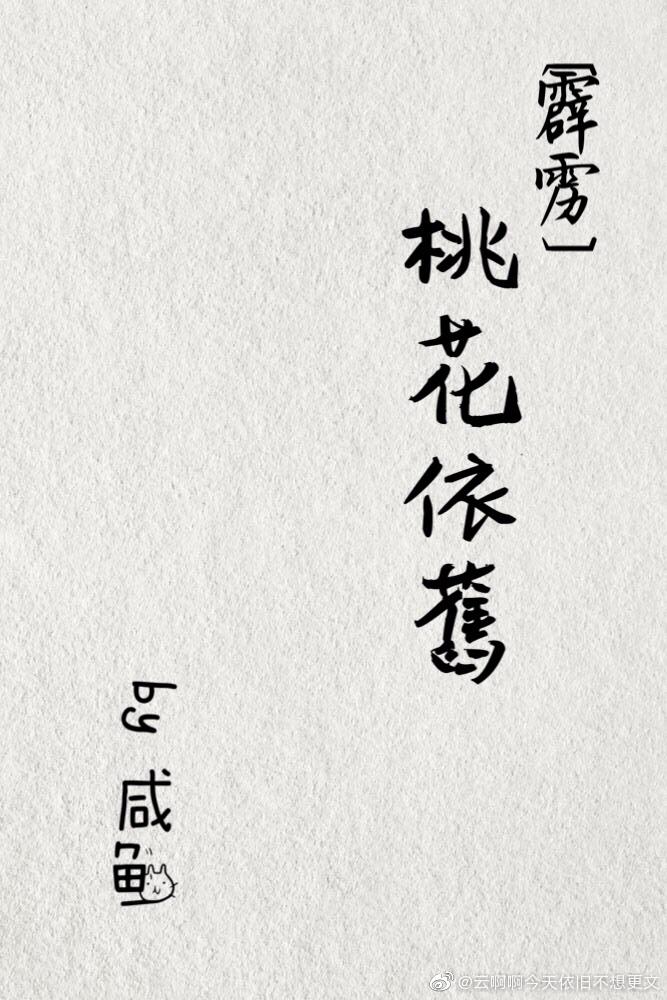 〔霹雳〕
桃花依舊
by 咸鱼
@云啊啊今天依旧不想更文